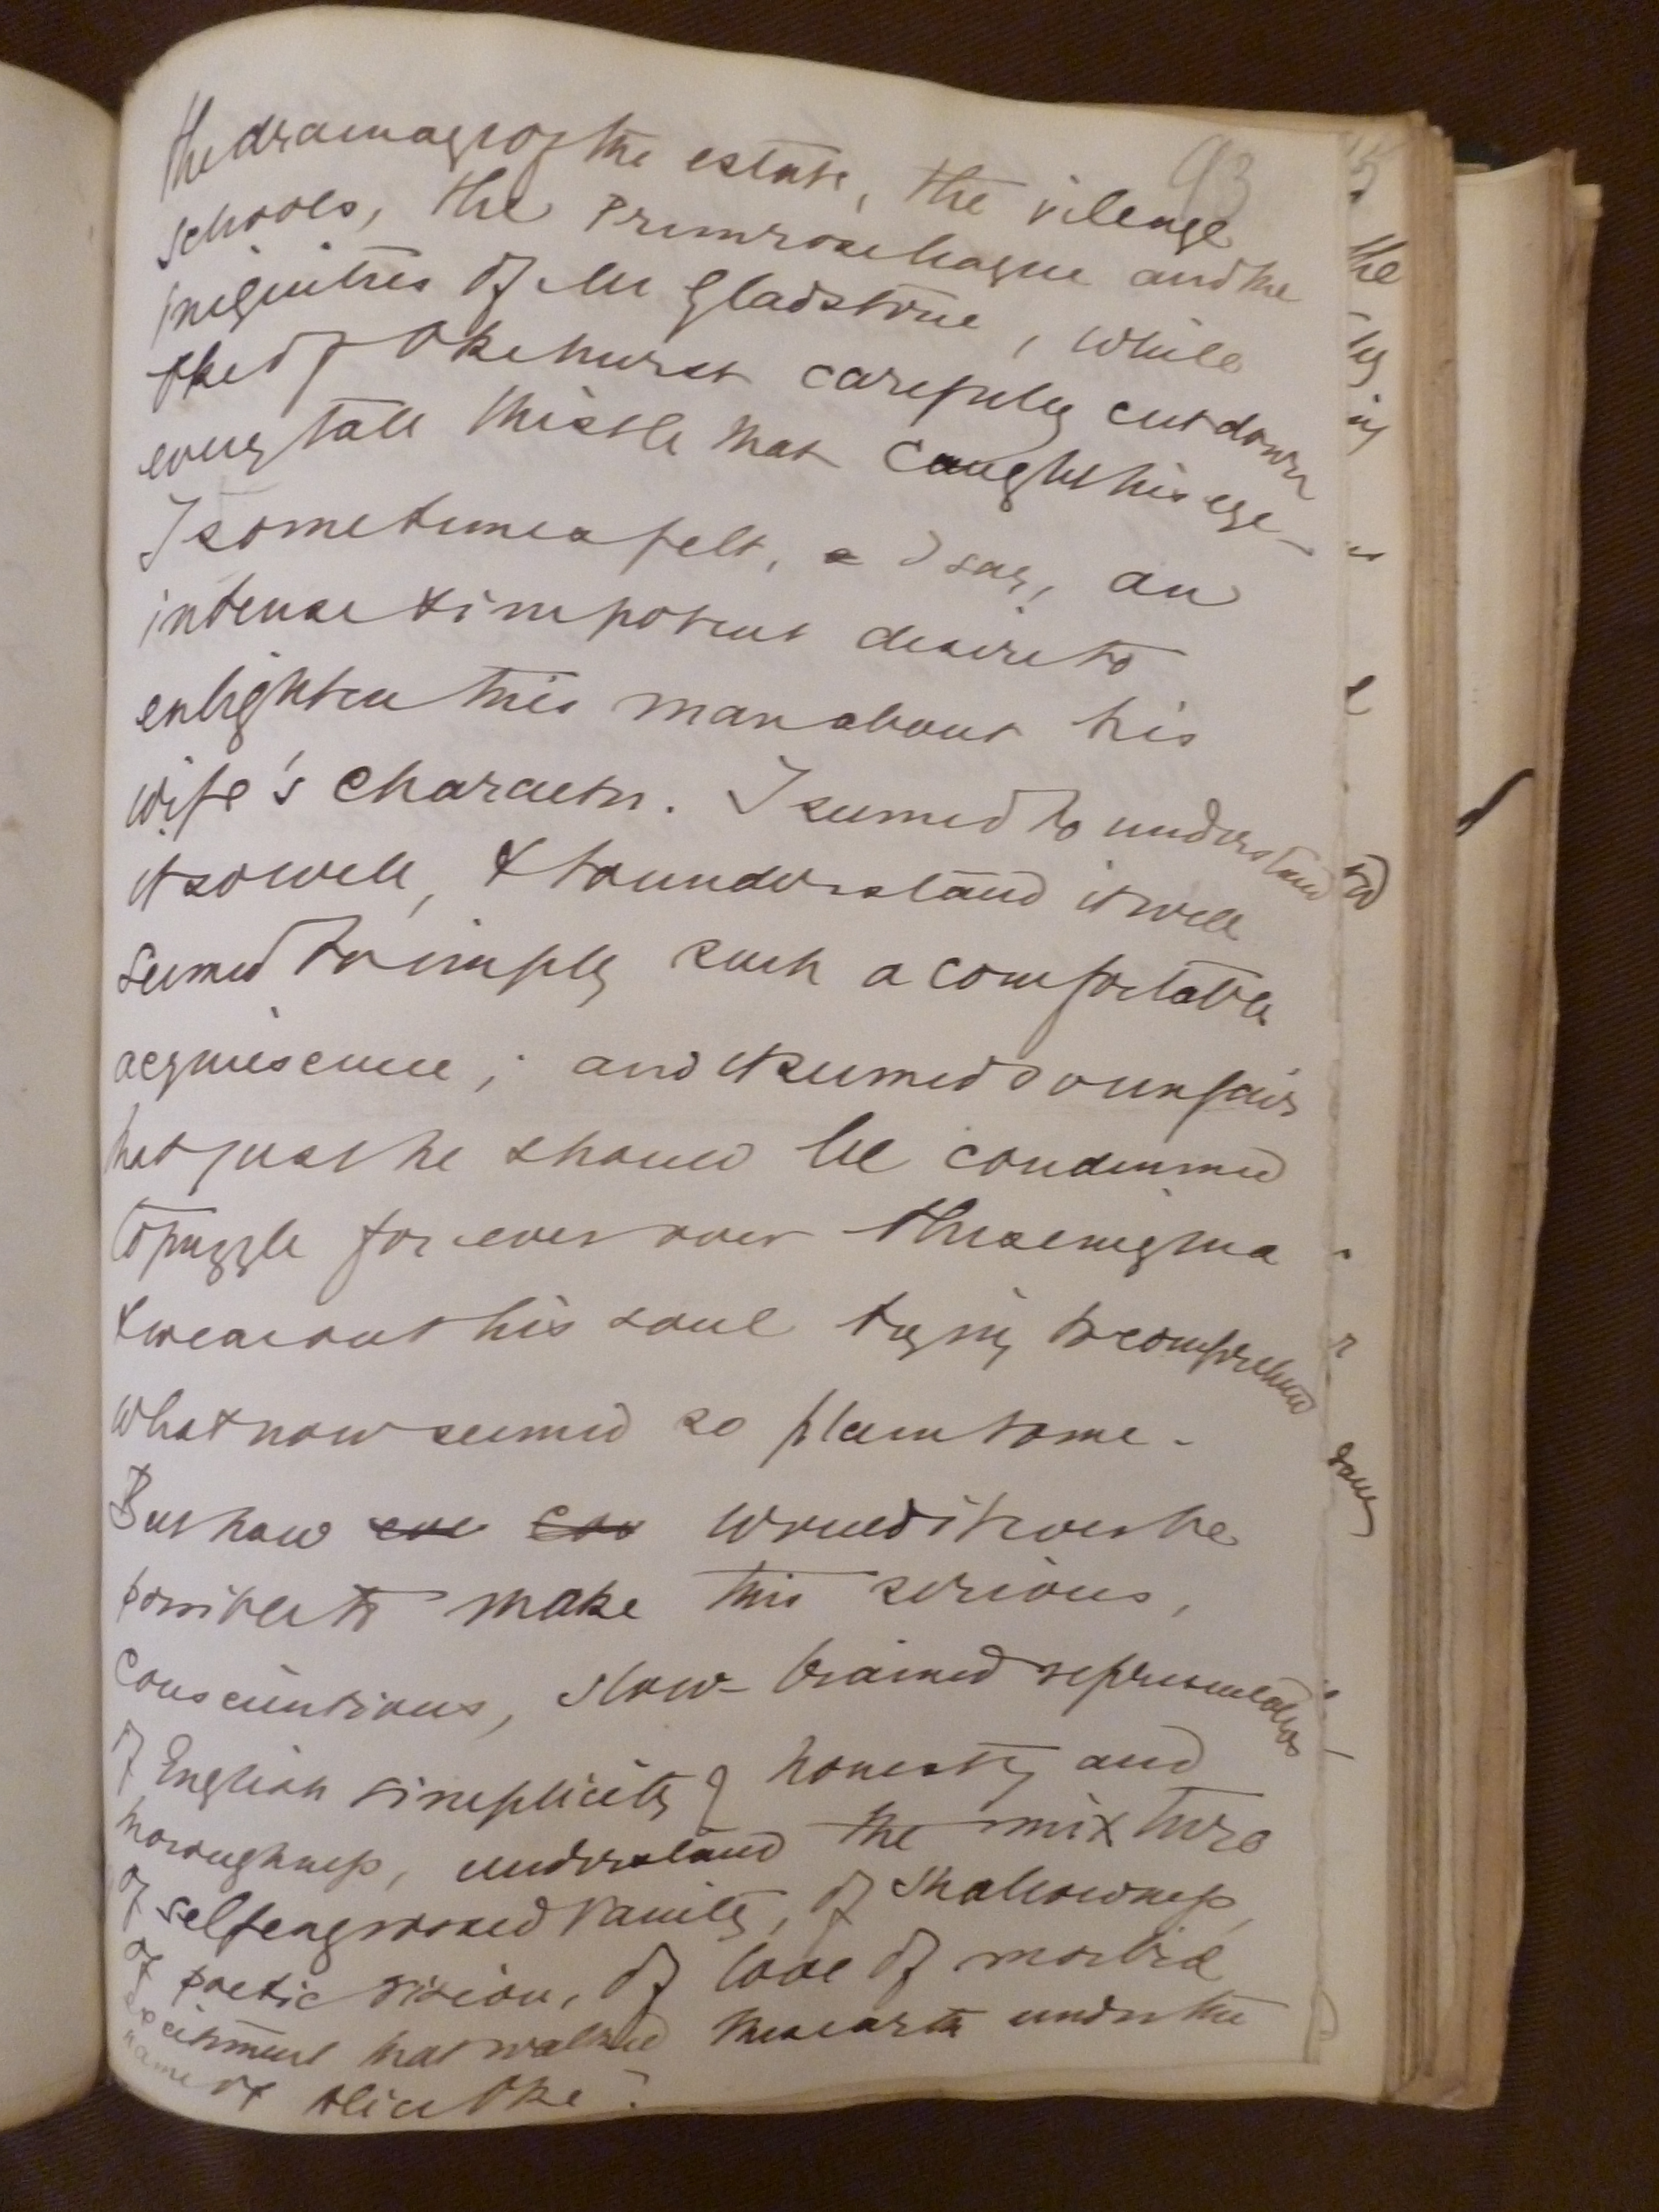 93
the drainage of the estate, the village
schools, the Primrose League and the
iniquities of Mr Gladstone, while
Oke of Okehurst carefully cut down
every tall thistle that caught his eye -
I sometimes felt, I say, an
intense & impotent desire to
enlighten this man about his
wife's character. I seemed to understand
it so well, & to understand it well
seemed to imply such a comfortable
acquiescence; and it seemed so unfair
that just he should be condemned
to puzzle for ever over this enigma
& wear out his soul trying to comprehend
what now seemed so plain to me -
But how would it ever be
possible to make this serious,
conscientious, slow-brained representative
of English simplicity & honesty and
thoroughness, understand the mixture
of self engrossed vanity, of shallowness,
of poetic vision, of love of morbid
excitement that walked this earth under the
name of Alice Oke?